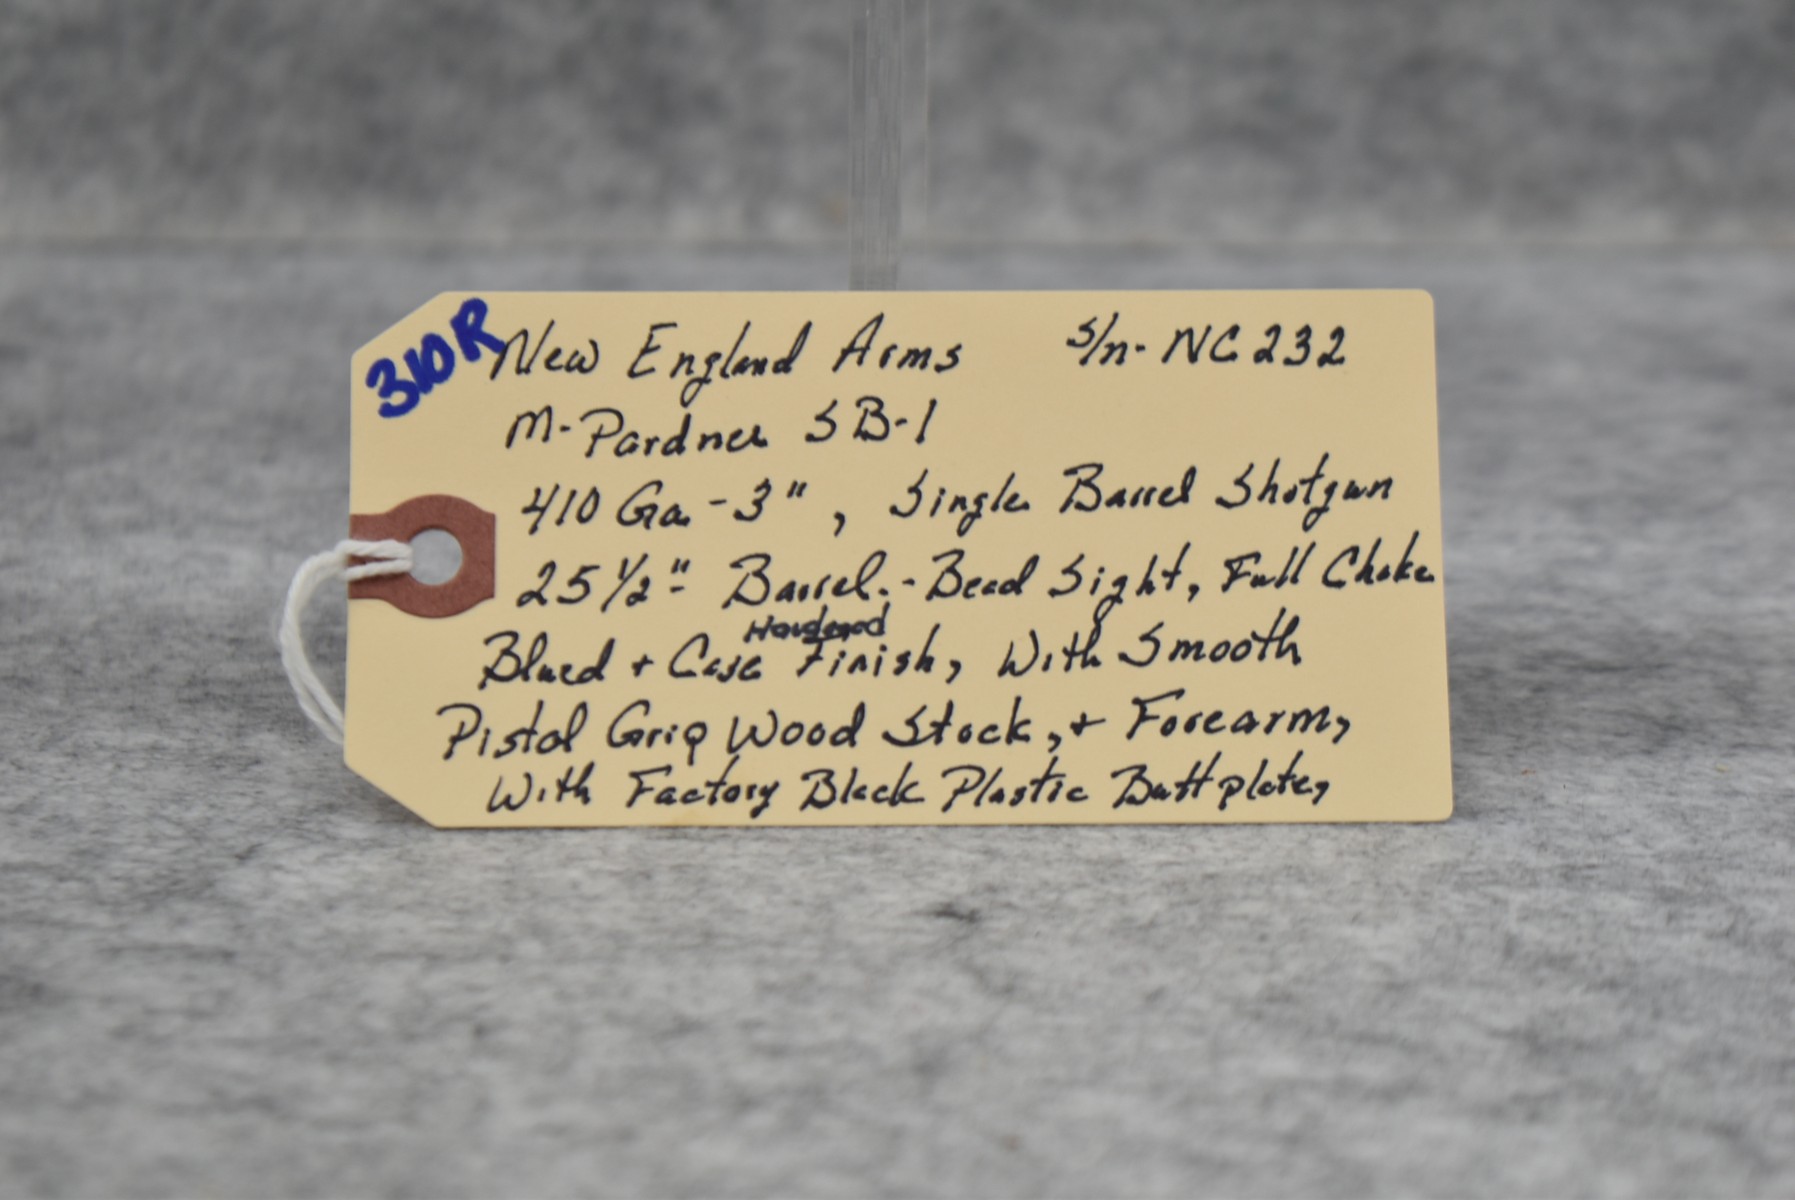 310R
New England Arms s/n- NC232
M- Pardner SB-1
410 Ga. - 3", Single Barrel Shotgun
25 1/2" - Barrel. - Bead Sight, Full Choke
Hardened
Blued + Case Finish, With Smooth
Pistol Grip Wood Stock, + Forearm,
With Factory Black Plastic Buttplate,